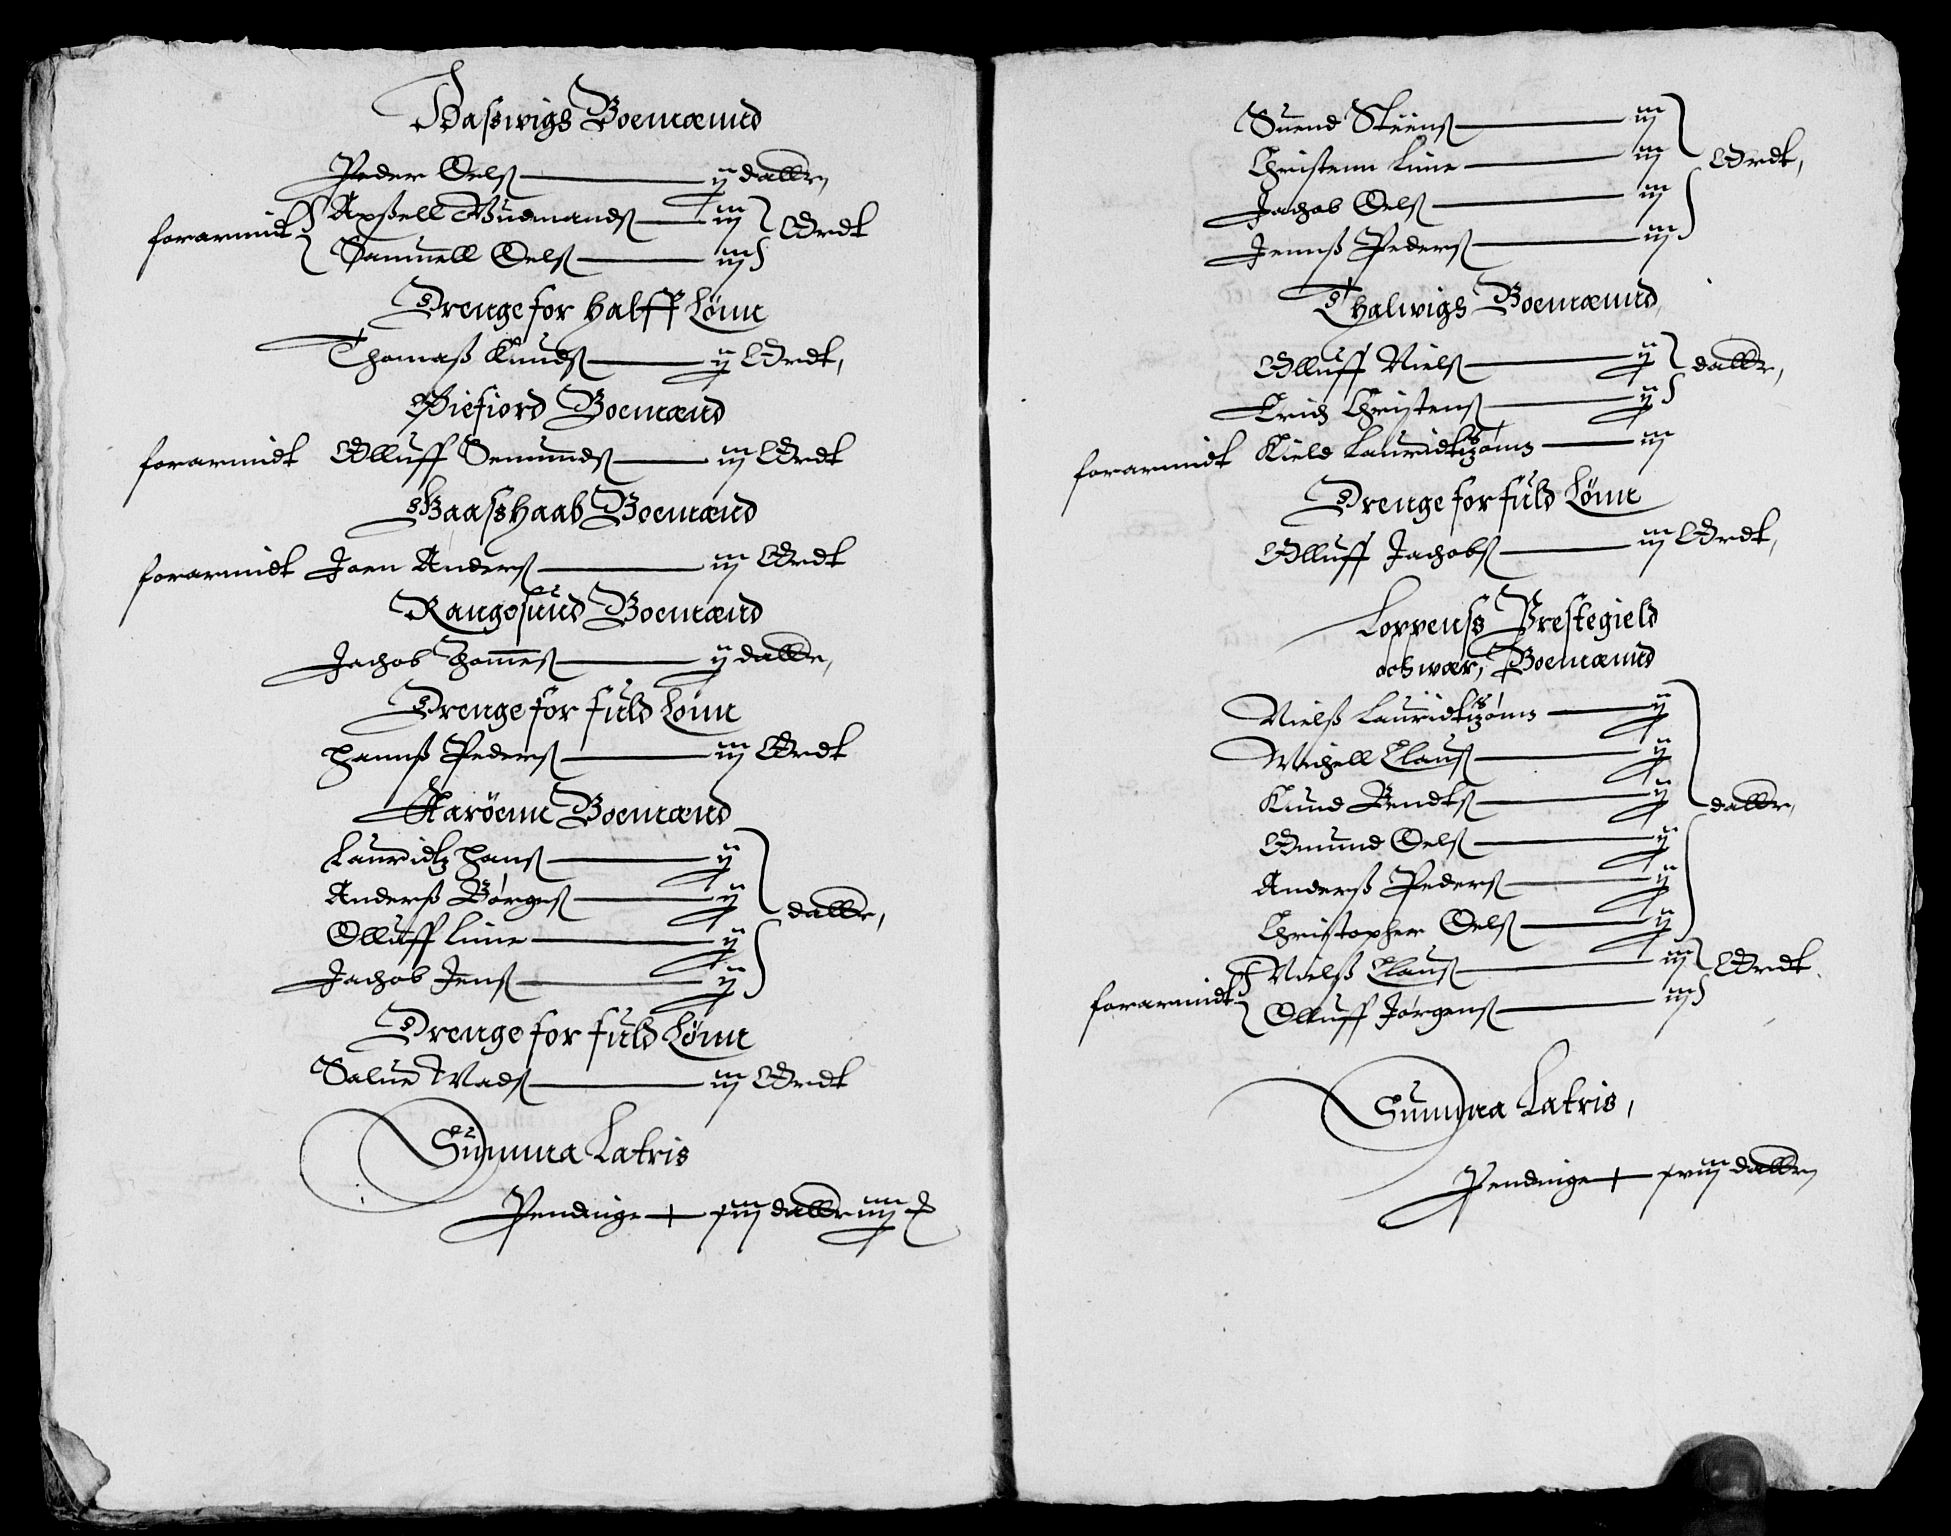 Hasswigs Boemænd
Peder Oelß ij daller,
forarmidt Axßell Gudmandß iij Ordt
Samuell Oelß iij
Drenge for halff Lønn
Thomaß Knudß ij Ordt,
Øiefiord Boemænd
forarmidt Olluff Semundß iij Ordt
Baasshaab Boemænd
forarmidt Joen Anderß iij Ordt
Rangesund Boemænd
Jachob Thomeß ij daller,
Drenge for fuld Lønn
Hannß Pederß iij Ordt
Karöenn Boemænd
Lauridtz Hanß ij
Anderß Børgeß ij daller,
Olluff Lune ij
Jachob Jenß ij
Drenge for fuld Lønn
Salue Madß iij Ordt
Summa Latris
Pendinge xiij daller iiij ß
Suend Stëenß iij
Christenn Lune iij Ordt,
Jachob Oelß iij
Jennß Pederß iij
Thalwigs Boemænd
Olluff Nielß ij daller,
Erich Christenß ij
forarmidt Kield Lauridtzønn iij
Drenge for fuld Lønn
Olluff Jachobß iij Ordt,
Loppenss Prestegield
och wær, Boemænd
Nielß Lauridtzønn ij
Michell Clauß ij
Knud Bendtß ij daller,
Omund Oelß ij
Anderß Pederß ij
Christopher Oelß ij
forarmidt Nielß Clauß iij Ordt
Olluff Jørgenß iij
Summa Latris,
Pendinge xviij daller